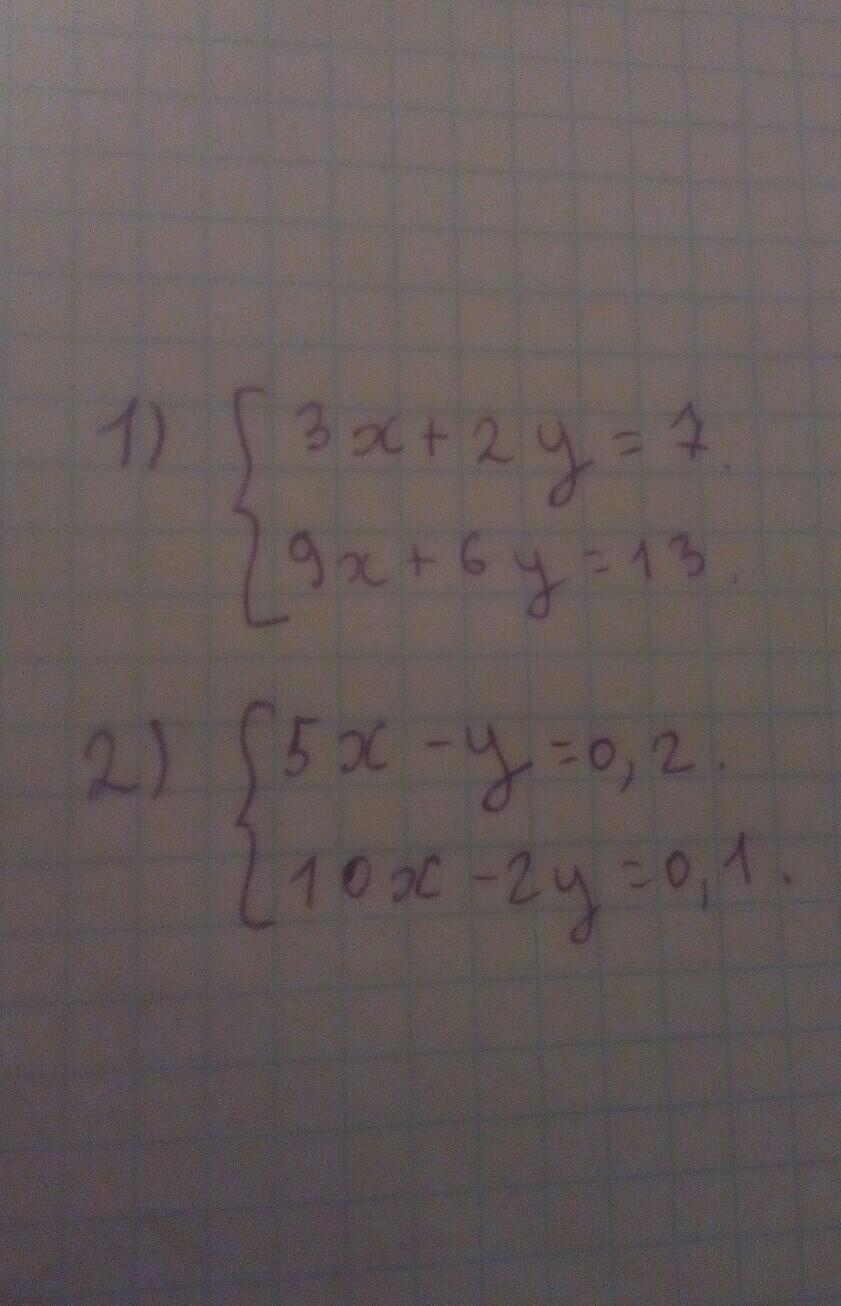 1) { 3x + 2y = 7.
9x + 6y = 13.
2) { 5x - y = 0,2.
10x - 2y = 0,1.